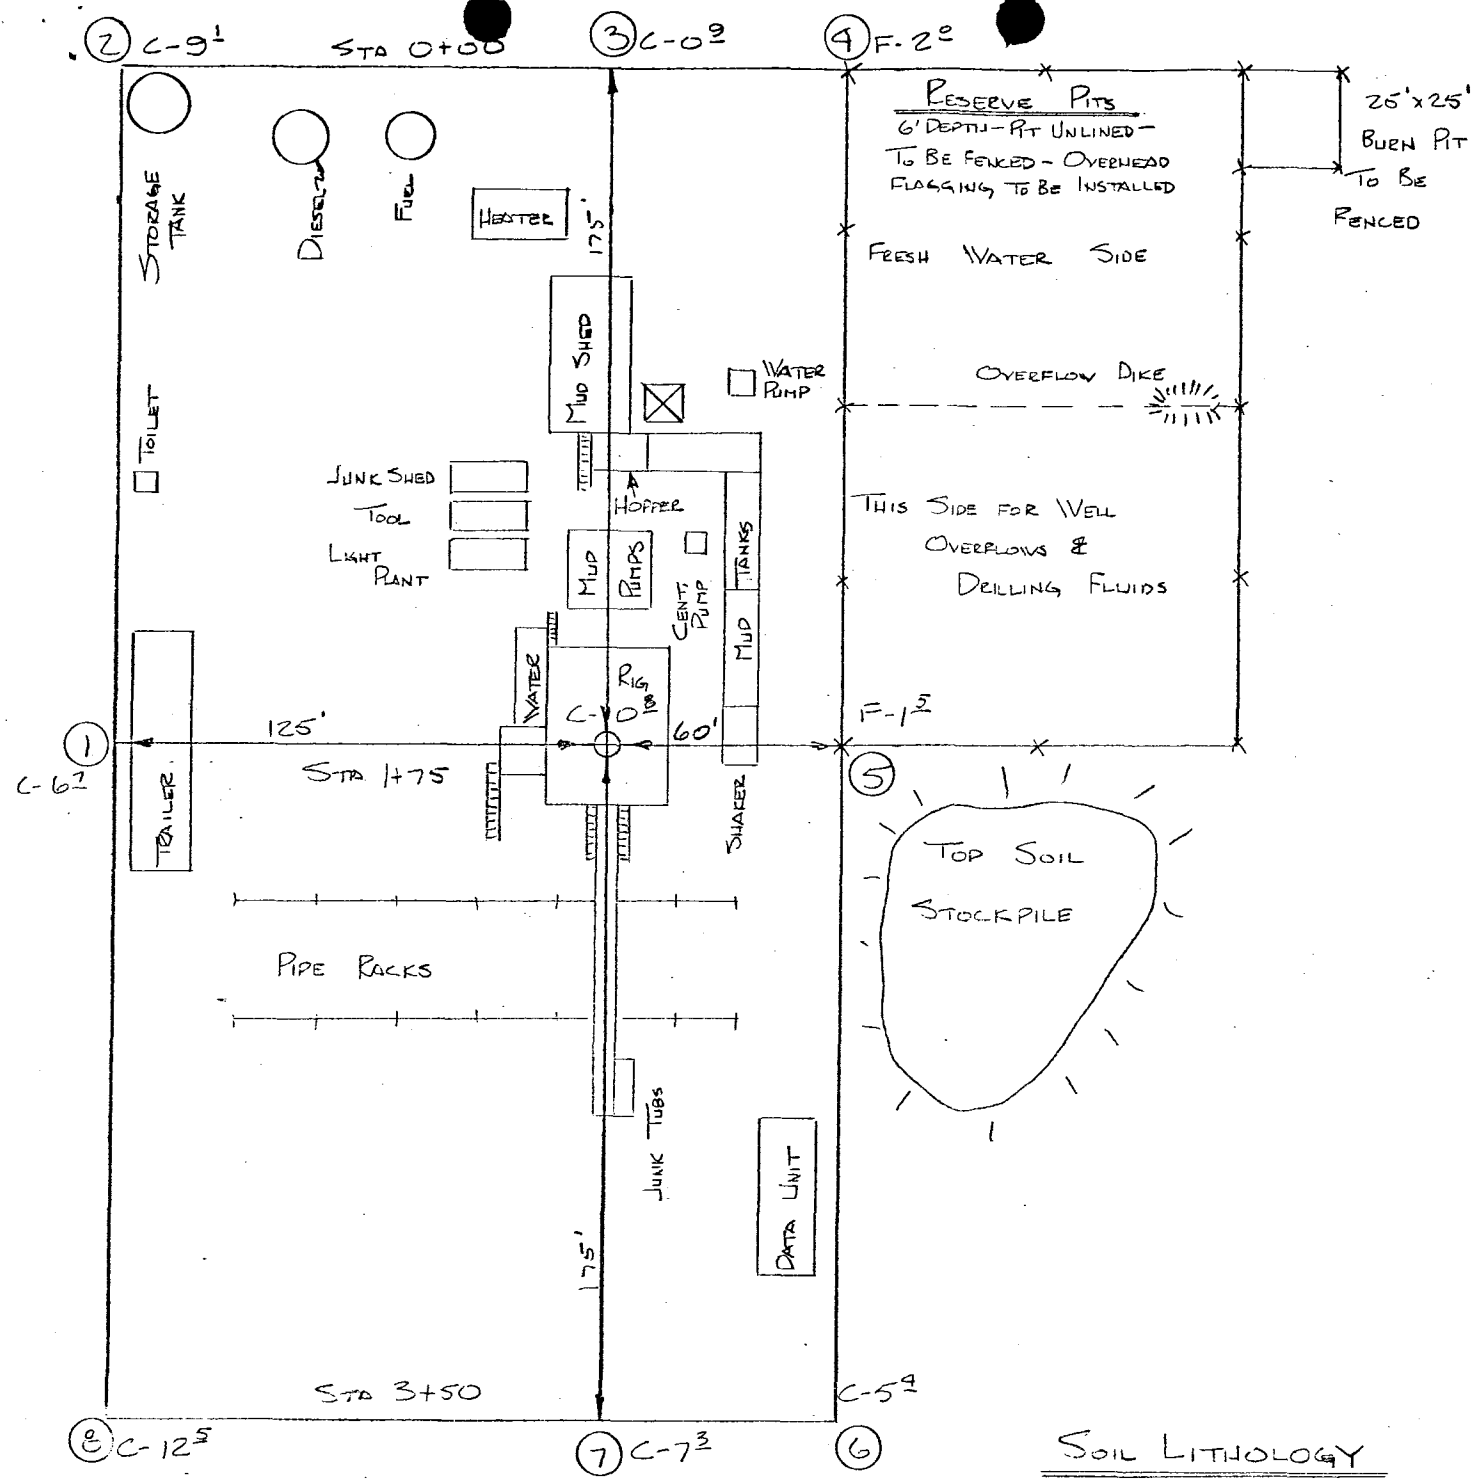 ② C-9¹
STA 0+00
③ C-0⁹
④ F-2⁰
RESERVE PITS
6' DEPTH-PIT UNLINED-
TO BE FENCED-OVERHEAD
FLAGGING TO BE INSTALLED
25'x25'
BURN PIT
TO BE
FENCED
STORAGE
TANK
DIESEL
FUEL
HEATER
175'
FRESH WATER SIDE
MUD SHED
WATER
PUMP
OVERFLOW DIKE
TOILET
JUNK SHED
TOOL
LIGHT
PLANT
HOPPER
MUD
PUMPS
CENT.
PUMP
TANKS
MUD
THIS SIDE FOR WELL
OVERFLOWS &
DRILLING FLUIDS
WATER
RIG
C-0⁸
F-1⁵
①
C-6⁷
125'
60'
STA 1+75
⑤
TRAILER
SHAKER
TOP SOIL
STOCKPILE
PIPE RACKS
JUNK TUBS
DATA UNIT
175'
STA 3+50
C-5⁴
⑧ C-12⁵
⑦ C-7³
⑥
SOIL LITHOLOGY